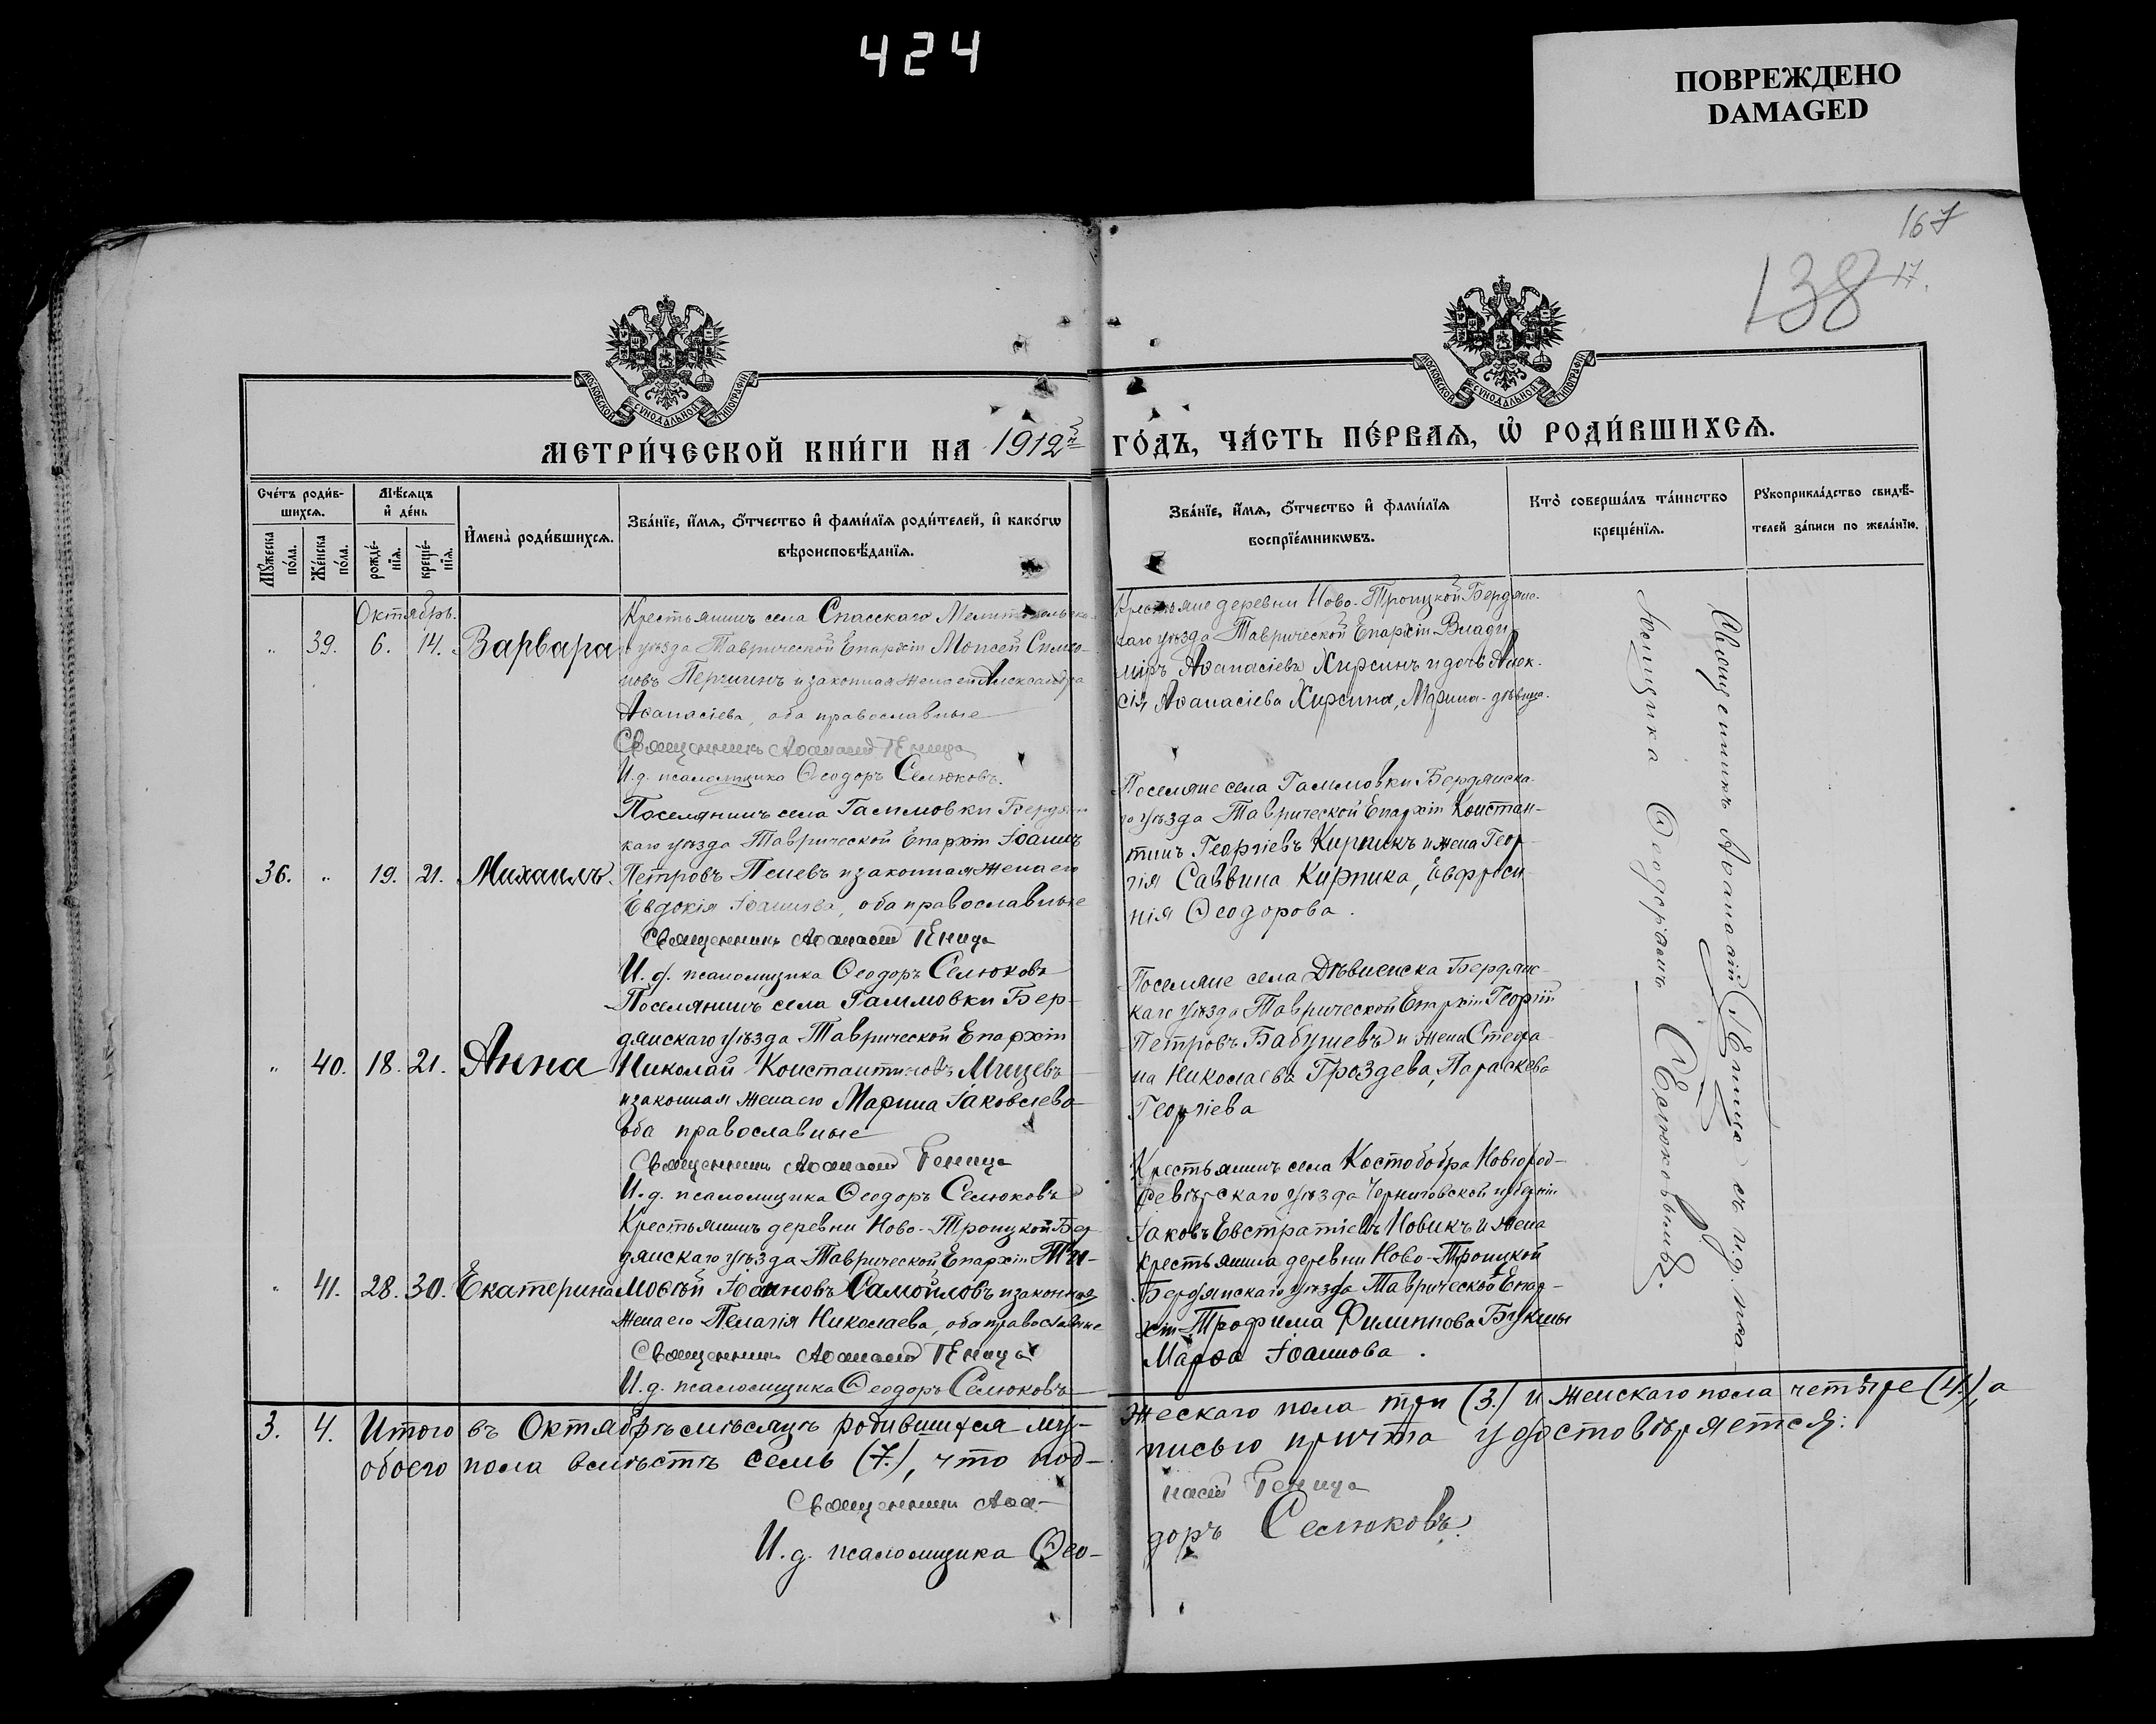 424
ПОВРЕЖДЕНО
DAMAGED
167
138
17.
МОСКОВСКОЙ СУНОДАЛЬНОЙ ТИПОГРАФІИ
МОСКОВСКОЙ СУНОДАЛЬНОЙ ТИПОГРАФІИ
МЕТРИ́ЧЕСКОЙ КНИ́ГИ НА 1912й
ГО́ДЪ, ЧА́СТЬ ПЕ́РВАѦ, Ѽ РОДИ́ВШИХСѦ.
Сче́тъ роди́в-
шихсѧ.
Мꙋ́жеска
по́ла.
Же́нска
по́ла.
Мѣ́сѧцъ
и҆ де́нь
рожде́-
нїѧ.
креще́-
нїѧ.
И҆мена̀ роди́вшихсѧ.
Зва́нїе, и҆́мѧ, ѻ҆́тчество и҆ фами́лїѧ роди́телей, и҆ како́гѡ
вѣроисповѣ́данїѧ.
Зва́нїе, и҆́мѧ, ѻ҆́тчество и҆ фами́лїѧ
воспрїе́мникѡвъ.
Кто̀ соверша́лъ та́инство
креще́нїѧ.
Рꙋкоприкла́дство свидѣ́-
телей за́писи по жела́нїю.
Октябрь.
„ 39. 6. 14. Варвара
Крестьянинъ села Спасскаго Мелитопольска-
го уѣзда Таврической Епархіи Моисей Симео-
новъ Першинъ и законная жена его Александра
Аѳанасіева, оба православные
Священникъ Аѳанасій Геница
И.д. псаломщика Ѳеодоръ Селюковъ.
Крестьяне деревни Ново-Троицкой Бердянс-
каго уѣзда Таврической Епархіи Влади-
міръ Аѳанасіевъ Хирсинъ и дочь Алек-
сія Аѳанасіева Хирсина, Марина-дѣвица.
36. „ 19. 21. Михаилъ.
Поселянинъ села Гаммовки Бердянс-
каго уѣзда Таврической Епархіи Іоаннъ
Петровъ Пеневъ и законная жена его
Евдокія Іоаннова, оба православные
Священникъ Аѳанасій Геница
И.д. псаломщика Ѳеодоръ Селюковъ
Поселяне села Гаммовки Бердянска-
го уѣзда Таврической Епархіи Констан-
тинъ Георгіевъ Кирпикъ и жена Геор-
гія Саввина Кирпика, Евфроси-
нія Ѳеодорова.
„ 40. 18. 21. Анна
Поселянинъ села Гаммовки Бер-
дянскаго уѣзда Таврической Епархіи
Николай Константиновъ Мицевъ
и законная жена его Марина Іаковлева
оба православные
Священникъ Аѳанасій Геница
И.д. псаломщика Ѳеодоръ Селюковъ
Поселяне села Дѣвненска Бердянс-
каго уѣзда Таврической Епархіи Георгій
Петровъ Бабушевъ и жена Стефа-
на Николаева Гроздева, Параскева
Георгіева
„ 41. 28. 30. Екатерина
Крестьянинъ деревни Ново-Троицкой Бер-
дянскаго уѣзда Таврической Епархіи Ти-
моѳей Іоанновъ Самойловъ и законная
жена его Пелагія Николаева, оба православные
Священникъ Аѳанасій Геница
И.д. псаломщика Ѳеодоръ Селюковъ
Крестьянинъ села Костобобра Новгород-
сѣверскаго уѣзда Черниговской губерніи
Іаковъ Евстратіевъ Новикъ и жена
крестьянина деревни Ново-Троицкой
Бердянскаго уѣзда Таврической Епар-
хіи Трофима Филиппова Букши
Марѳа Іоаннова.
Священникъ Аѳанасій Геница съ и.д. пса-
ломщика Ѳеодоромъ Селюковымъ.
3. 4. Итого въ Октябрѣ мѣсяцѣ родившихся му-
жескаго пола три (3.) и женскаго пола четыре (4.), а
обоего пола вмѣстѣ семь (7.), что под-
писью причта удостовѣряется:
Священникъ Аѳа-
насій Геница
И.д. псаломщика Ѳео-
доръ Селюковъ.